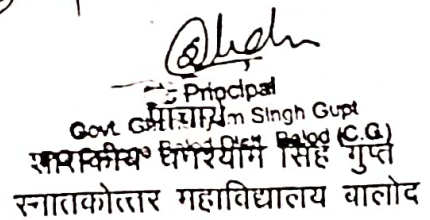 Principal
प्राचार्य
Govt. G Singh Gupt
Balod Dist. Balod (C.G.)
शासकीय घनश्याम सिंह गुप्त
स्नातकोत्तर महाविद्यालय बालोद